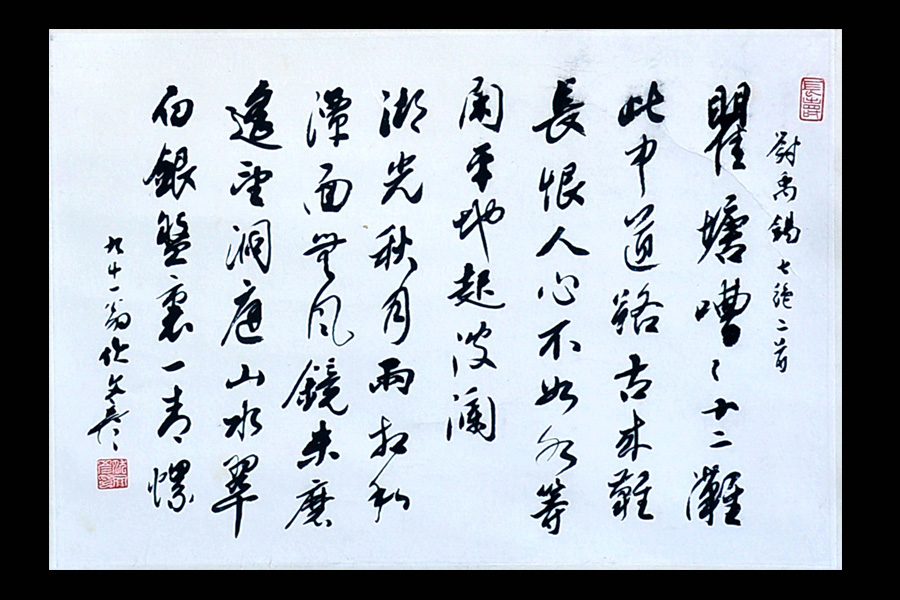 長壽
劉禹錫七絕二首
瞿塘嘈〻十二灘
此中道路古來難
長恨人心不如水等
閑平地起波瀾
湖光秋月兩相和
潭面無風鏡未磨
遙望洞庭山水翠
白銀盤裏一青螺
九十一翁